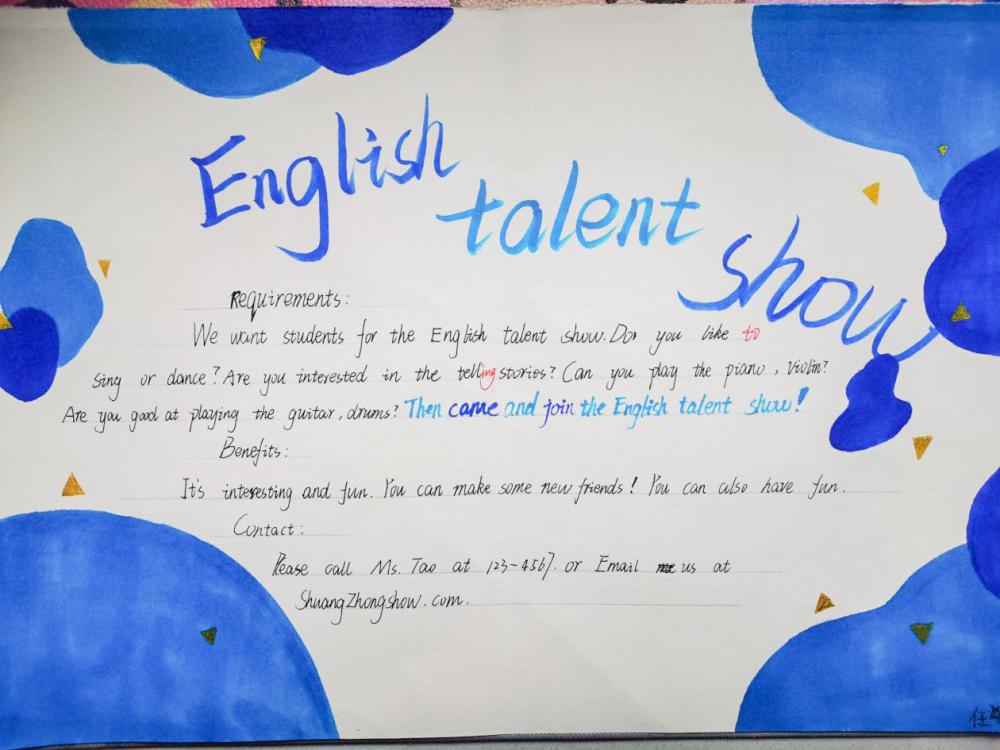 English
talent
show
Requirements:
We want students for the English talent show. Do you like to
sing or dance? Are you interested in the telling stories? Can you play the piano, violin?
Are you good at playing the guitar, drums? Then came and join the English talent show!
Benefits:
It's interesting and fun. You can make some new friends! You can also have fun.
Contact:
Please call Ms. Tao at 123-4567. or Email us at
ShuangZhongshow.com.